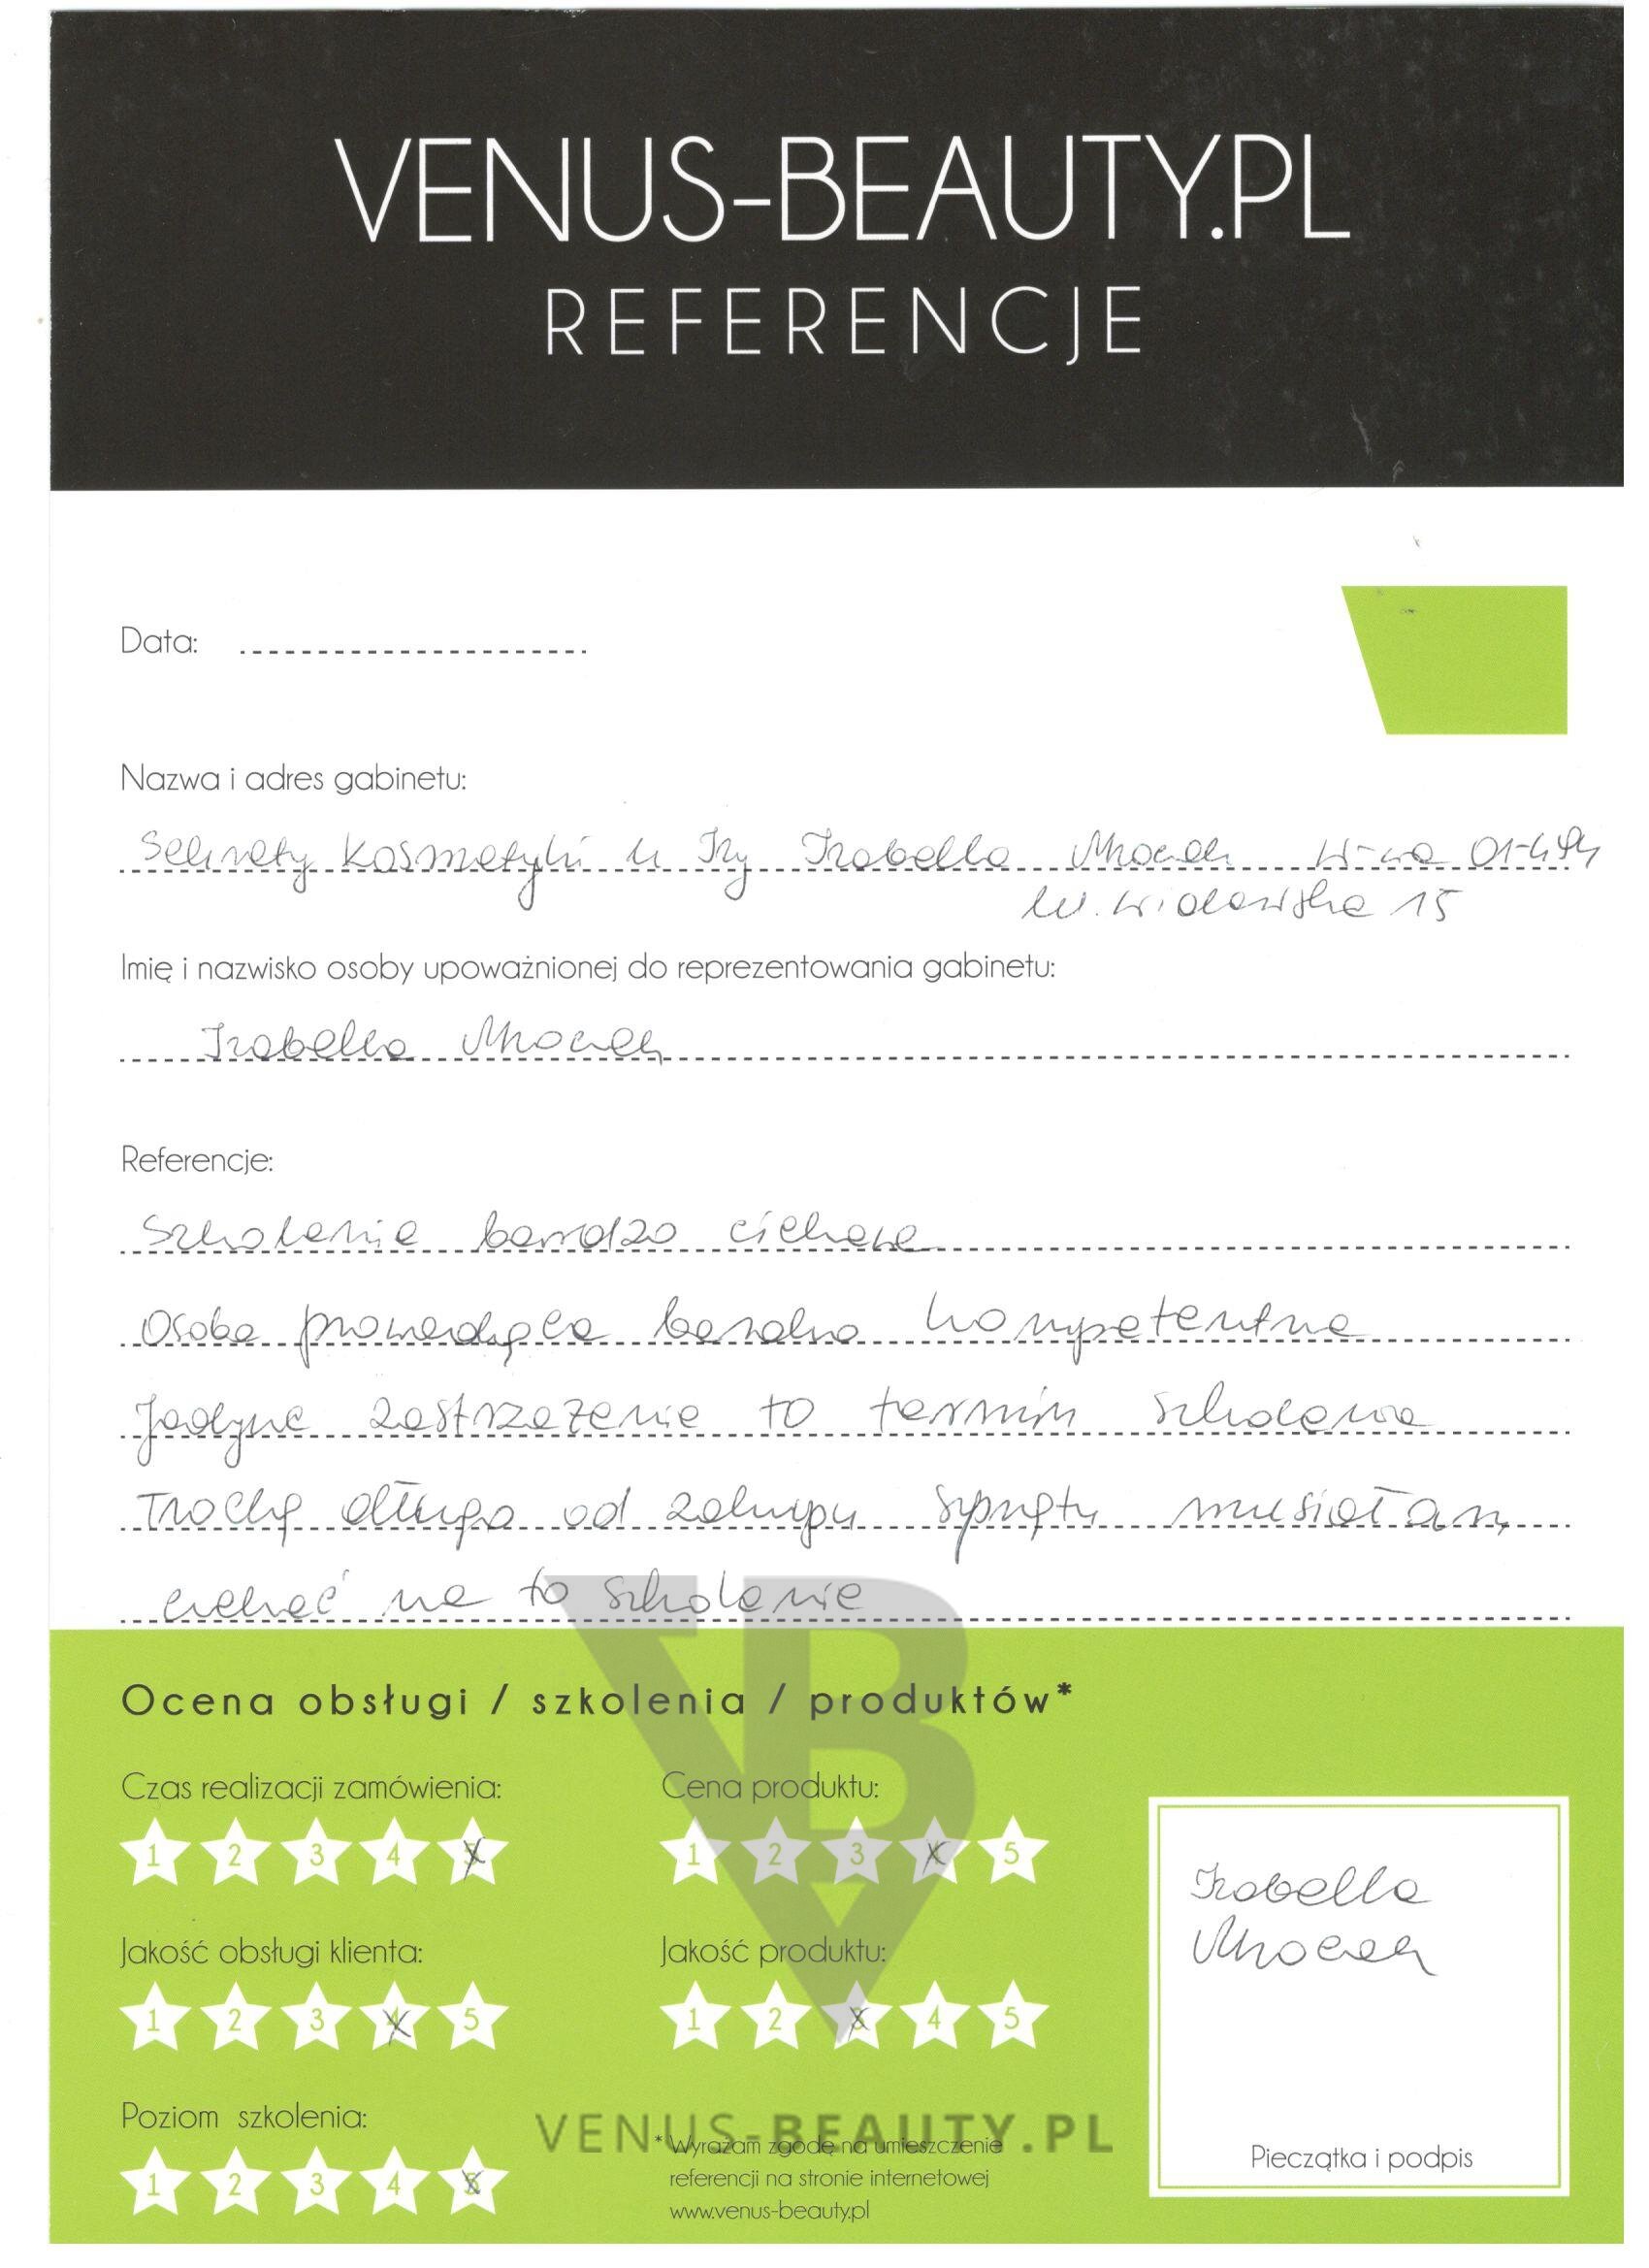 VENUS-BEAUTY.PL
REFERENCJE
Data:
Nazwa i adres gabinetu:
Sekrety kosmetyki u Izy Izabella W-wa 01-494
ul. Widawska 15
Imię i nazwisko osoby upoważnionej do reprezentowania gabinetu:
Izabella
Referencje:
Szkolenie bardzo ciekawe
Osoba prowadząca bardzo kompetentna
Jedyne zastrzeżenie to termin szkolenia
Trochę długo od zakupu sprzętu musiałam
czekać na to szkolenie
Ocena obsługi / szkolenia / produktów*
Czas realizacji zamówienia:
1 2 3 4 5
Cena produktu:
1 2 3 4 5
Jakość obsługi klienta:
1 2 3 4 5
Jakość produktu:
1 2 3 4 5
Poziom szkolenia:
1 2 3 4 5
VENUS-BEAUTY.PL
* Wyrażam zgodę na umieszczenie
referencji na stronie internetowej
www.venus-beauty.pl
Izabella
Pieczątka i podpis
VB